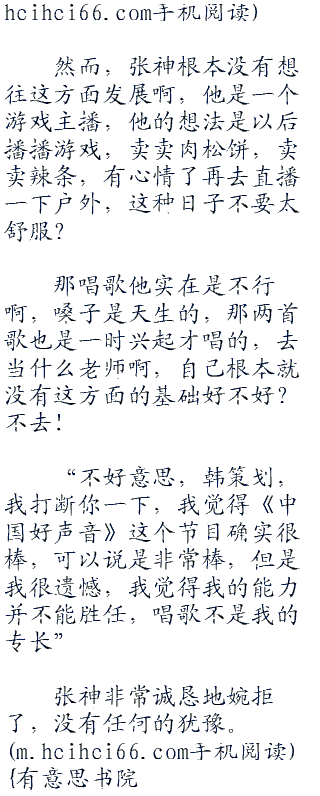 hcihci66.com手机阅读)
然而，张神根本没有想
往这方面发展啊，他是一个
游戏主播，他的想法是以后
播播游戏，卖卖肉松饼，卖
卖辣条，有心情了再去直播
一下户外，这种日子不要太
舒服？
那唱歌他实在是不行
啊，嗓子是天生的，那两首
歌也是一时兴起才唱的，去
当什么老师啊，自己根本就
没有这方面的基础好不好？
不去！
“不好意思，韩策划，
我打断你一下，我觉得《中
国好声音》这个节目确实很
棒，可以说是非常棒，但是
我很遗憾，我觉得我的能力
并不能胜任，唱歌不是我的
专长”
张神非常诚恳地婉拒
了，没有任何的犹豫。
(m.hcihci66.com手机阅读)
{有意思书院